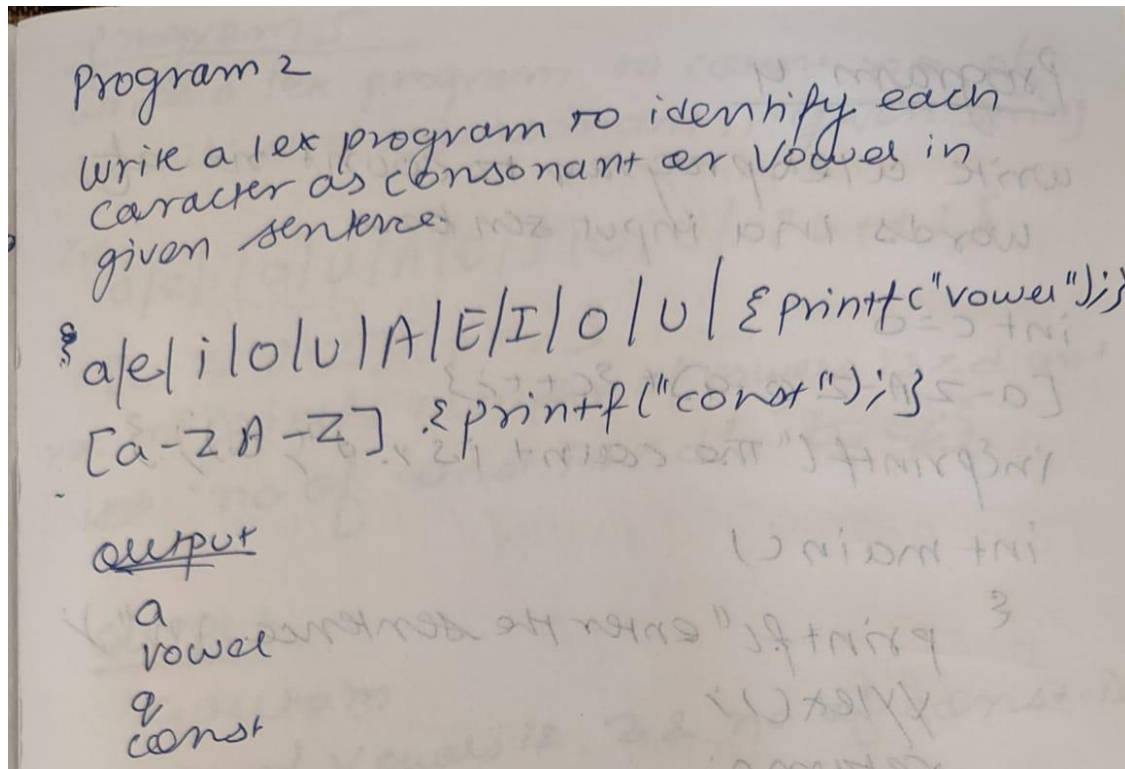 Program 2
write a lex program to identify each
caracter as consonant or vowel in
given sentence.
a|e|i|o|u|A|E|I|O|U| {printf("vowel");}
[a-zA-Z] {printf("const");}
output
a
vowel
q
const